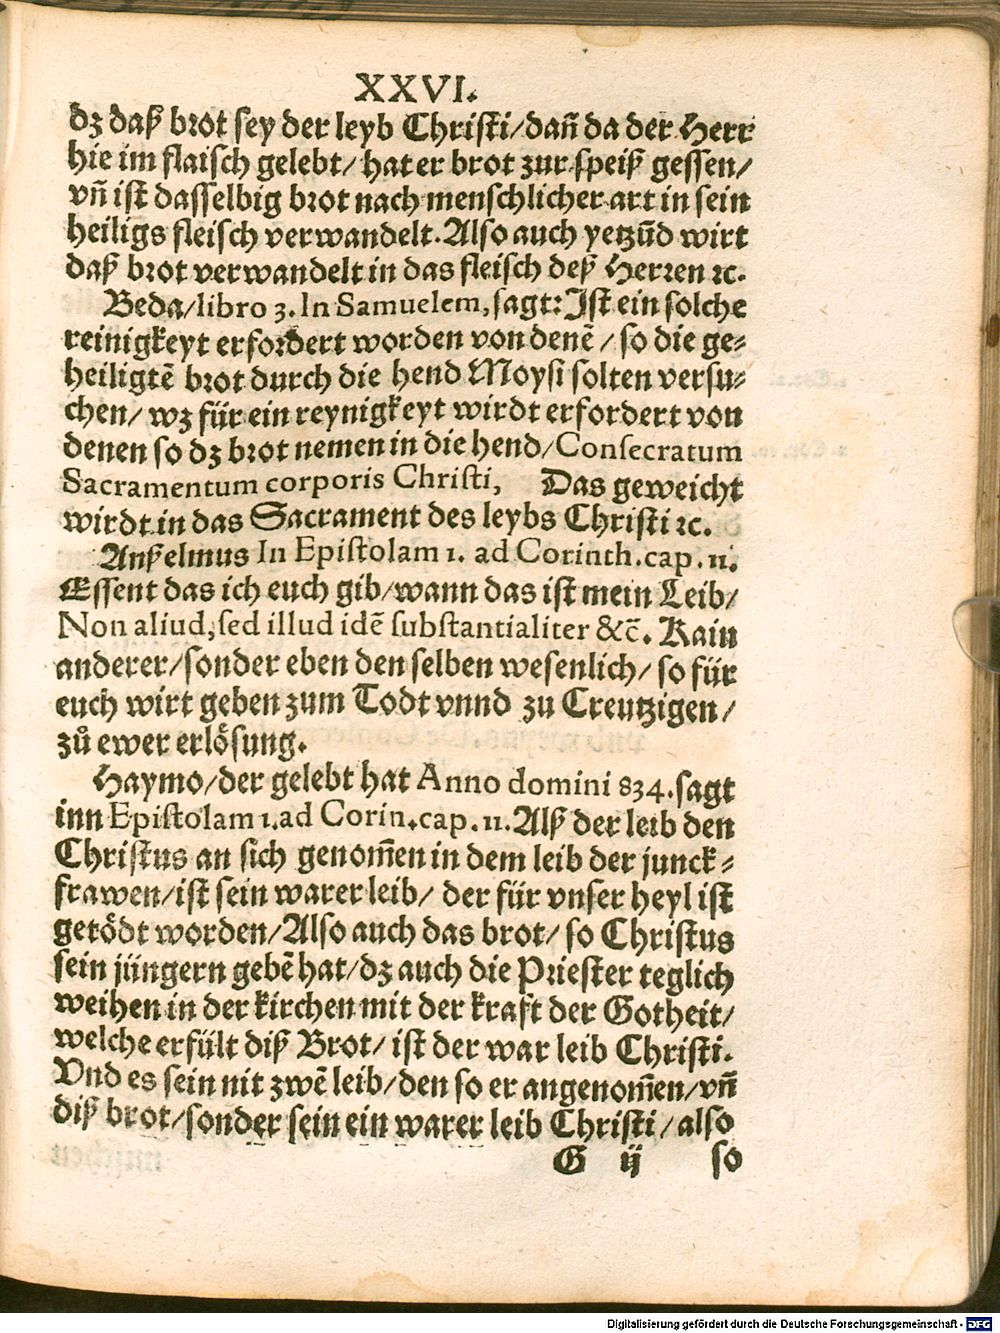 XXVI.
dz daß brot sey der leyb Christi/dañ da der Herr
hie im flaisch gelebt/ hat er brot zur speiß gessen/
vñ ist dasselbig brot nach menschlicher art in sein
heiligs fleisch verwandelt. Also auch yetzũd wirt
daß brot verwandelt in das fleisch deß Herren ꝛc.
Beda/libro 3. In Samuelem, sagt: Ist ein solche
reinigkeyt erfordert worden von denẽ / so die ge⸗
heiligtẽ brot durch die hend Moysi solten versu⸗
chen/ wz für ein reynigkeyt wirdt erfordert von
denen so dz brot nemen in die hend/Consecratum
Sacramentum corporis Christi, Das geweicht
wirdt in das Sacrament des leybs Christi ꝛc.
Anßelmus In Epistolam 1. ad Corinth. cap. 11.
Essent das ich euch gib/wann das ist mein Leib/
Non aliud, sed illud idẽ substantialiter &c̃. Kain
anderer/sonder eben den selben wesenlich/ so für
euch wirt geben zum Todt vnnd zu Creutzigen/
zů ewer erlösung.
Haymo/der gelebt hat Anno domini 834. sagt
inn Epistolam 1. ad Corin. cap. 11. Alß der leib den
Christus an sich genom̃en in dem leib der junck⸗
frawen/ist sein warer leib/ der für vnser heyl ist
getödt worden/Also auch das brot/ so Christus
sein jüngern gebẽ hat/dz auch die Priester teglich
weihen in der kirchen mit der kraft der Gotheit/
welche erfült diß Brot/ ist der war leib Christi.
Vnd es sein nit zwẽ leib/den so er angenom̃en/vñ
diß brot/sonder sein ein warer leib Christi/also
G ij so
Digitalisierung gefördert durch die Deutsche Forschungsgemeinschaft - DFG